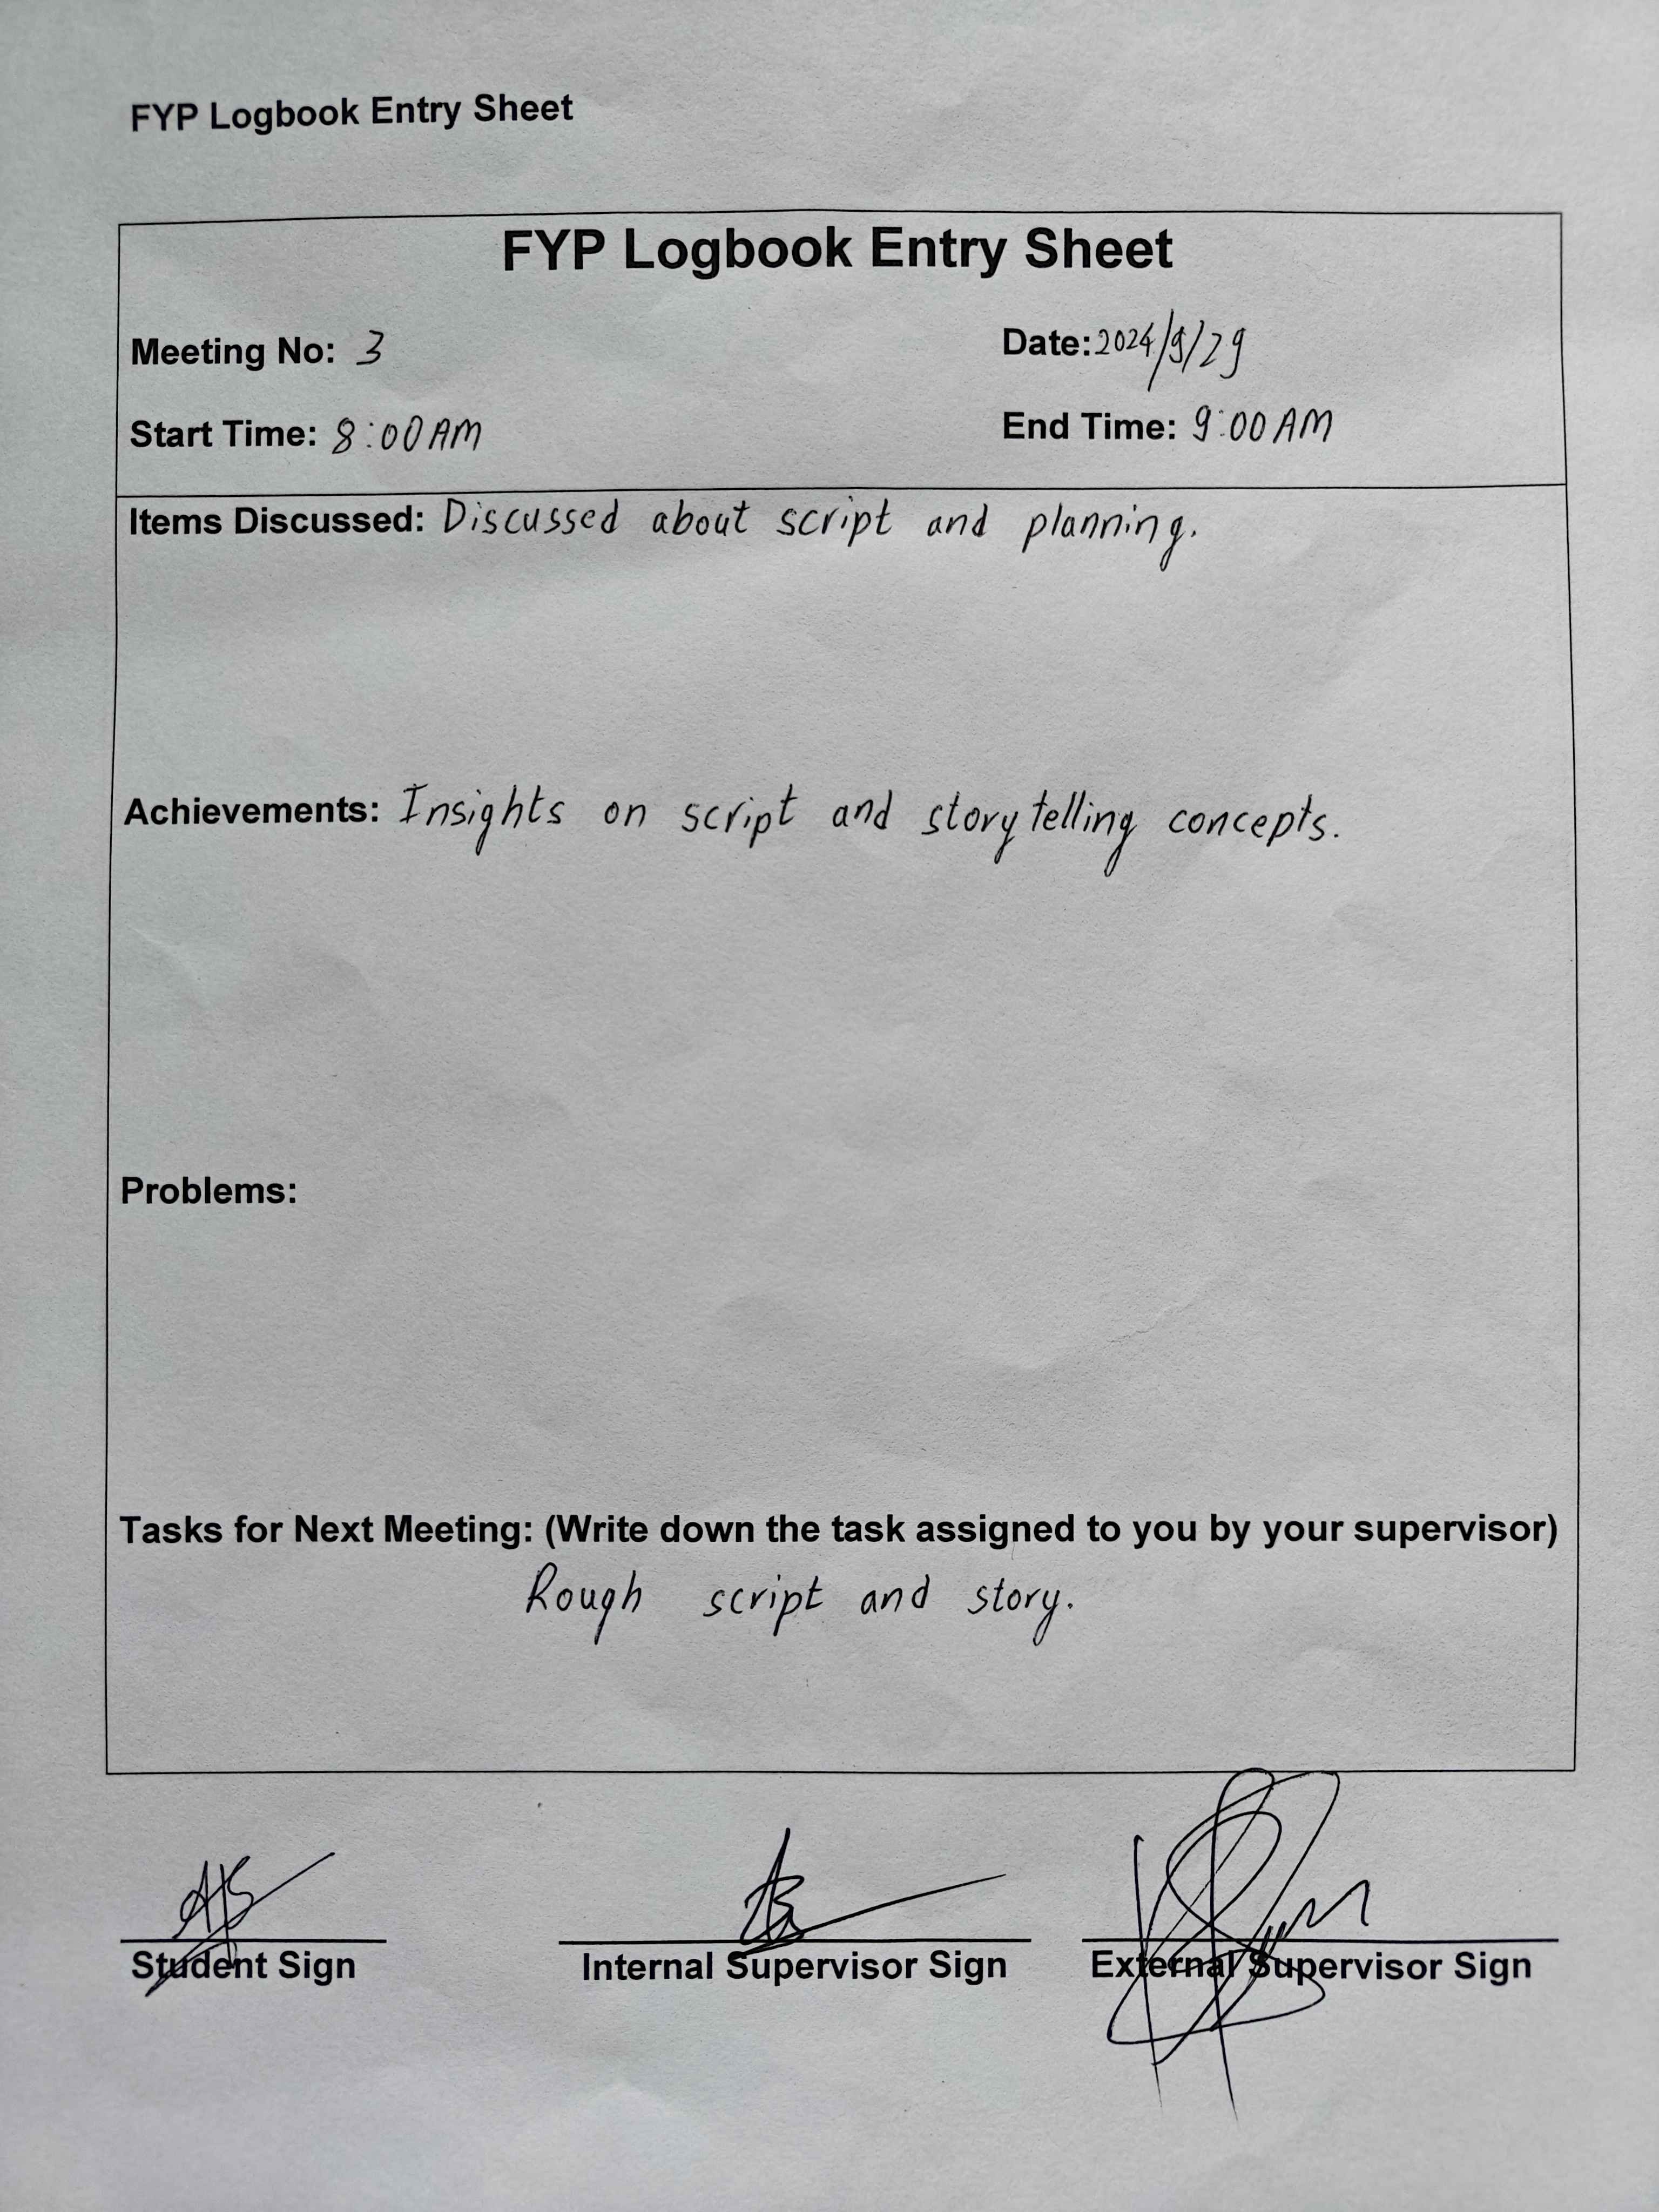 FYP Logbook Entry Sheet
FYP Logbook Entry Sheet
Meeting No: 3
Date: 2024/9/29
Start Time: 8:00 AM
End Time: 9:00 AM
Items Discussed: Discussed about script and planning.
Achievements: Insights on script and storytelling concepts.
Problems:
Tasks for Next Meeting: (Write down the task assigned to you by your supervisor)
Rough script and story.
Student Sign
Internal Supervisor Sign
External Supervisor Sign